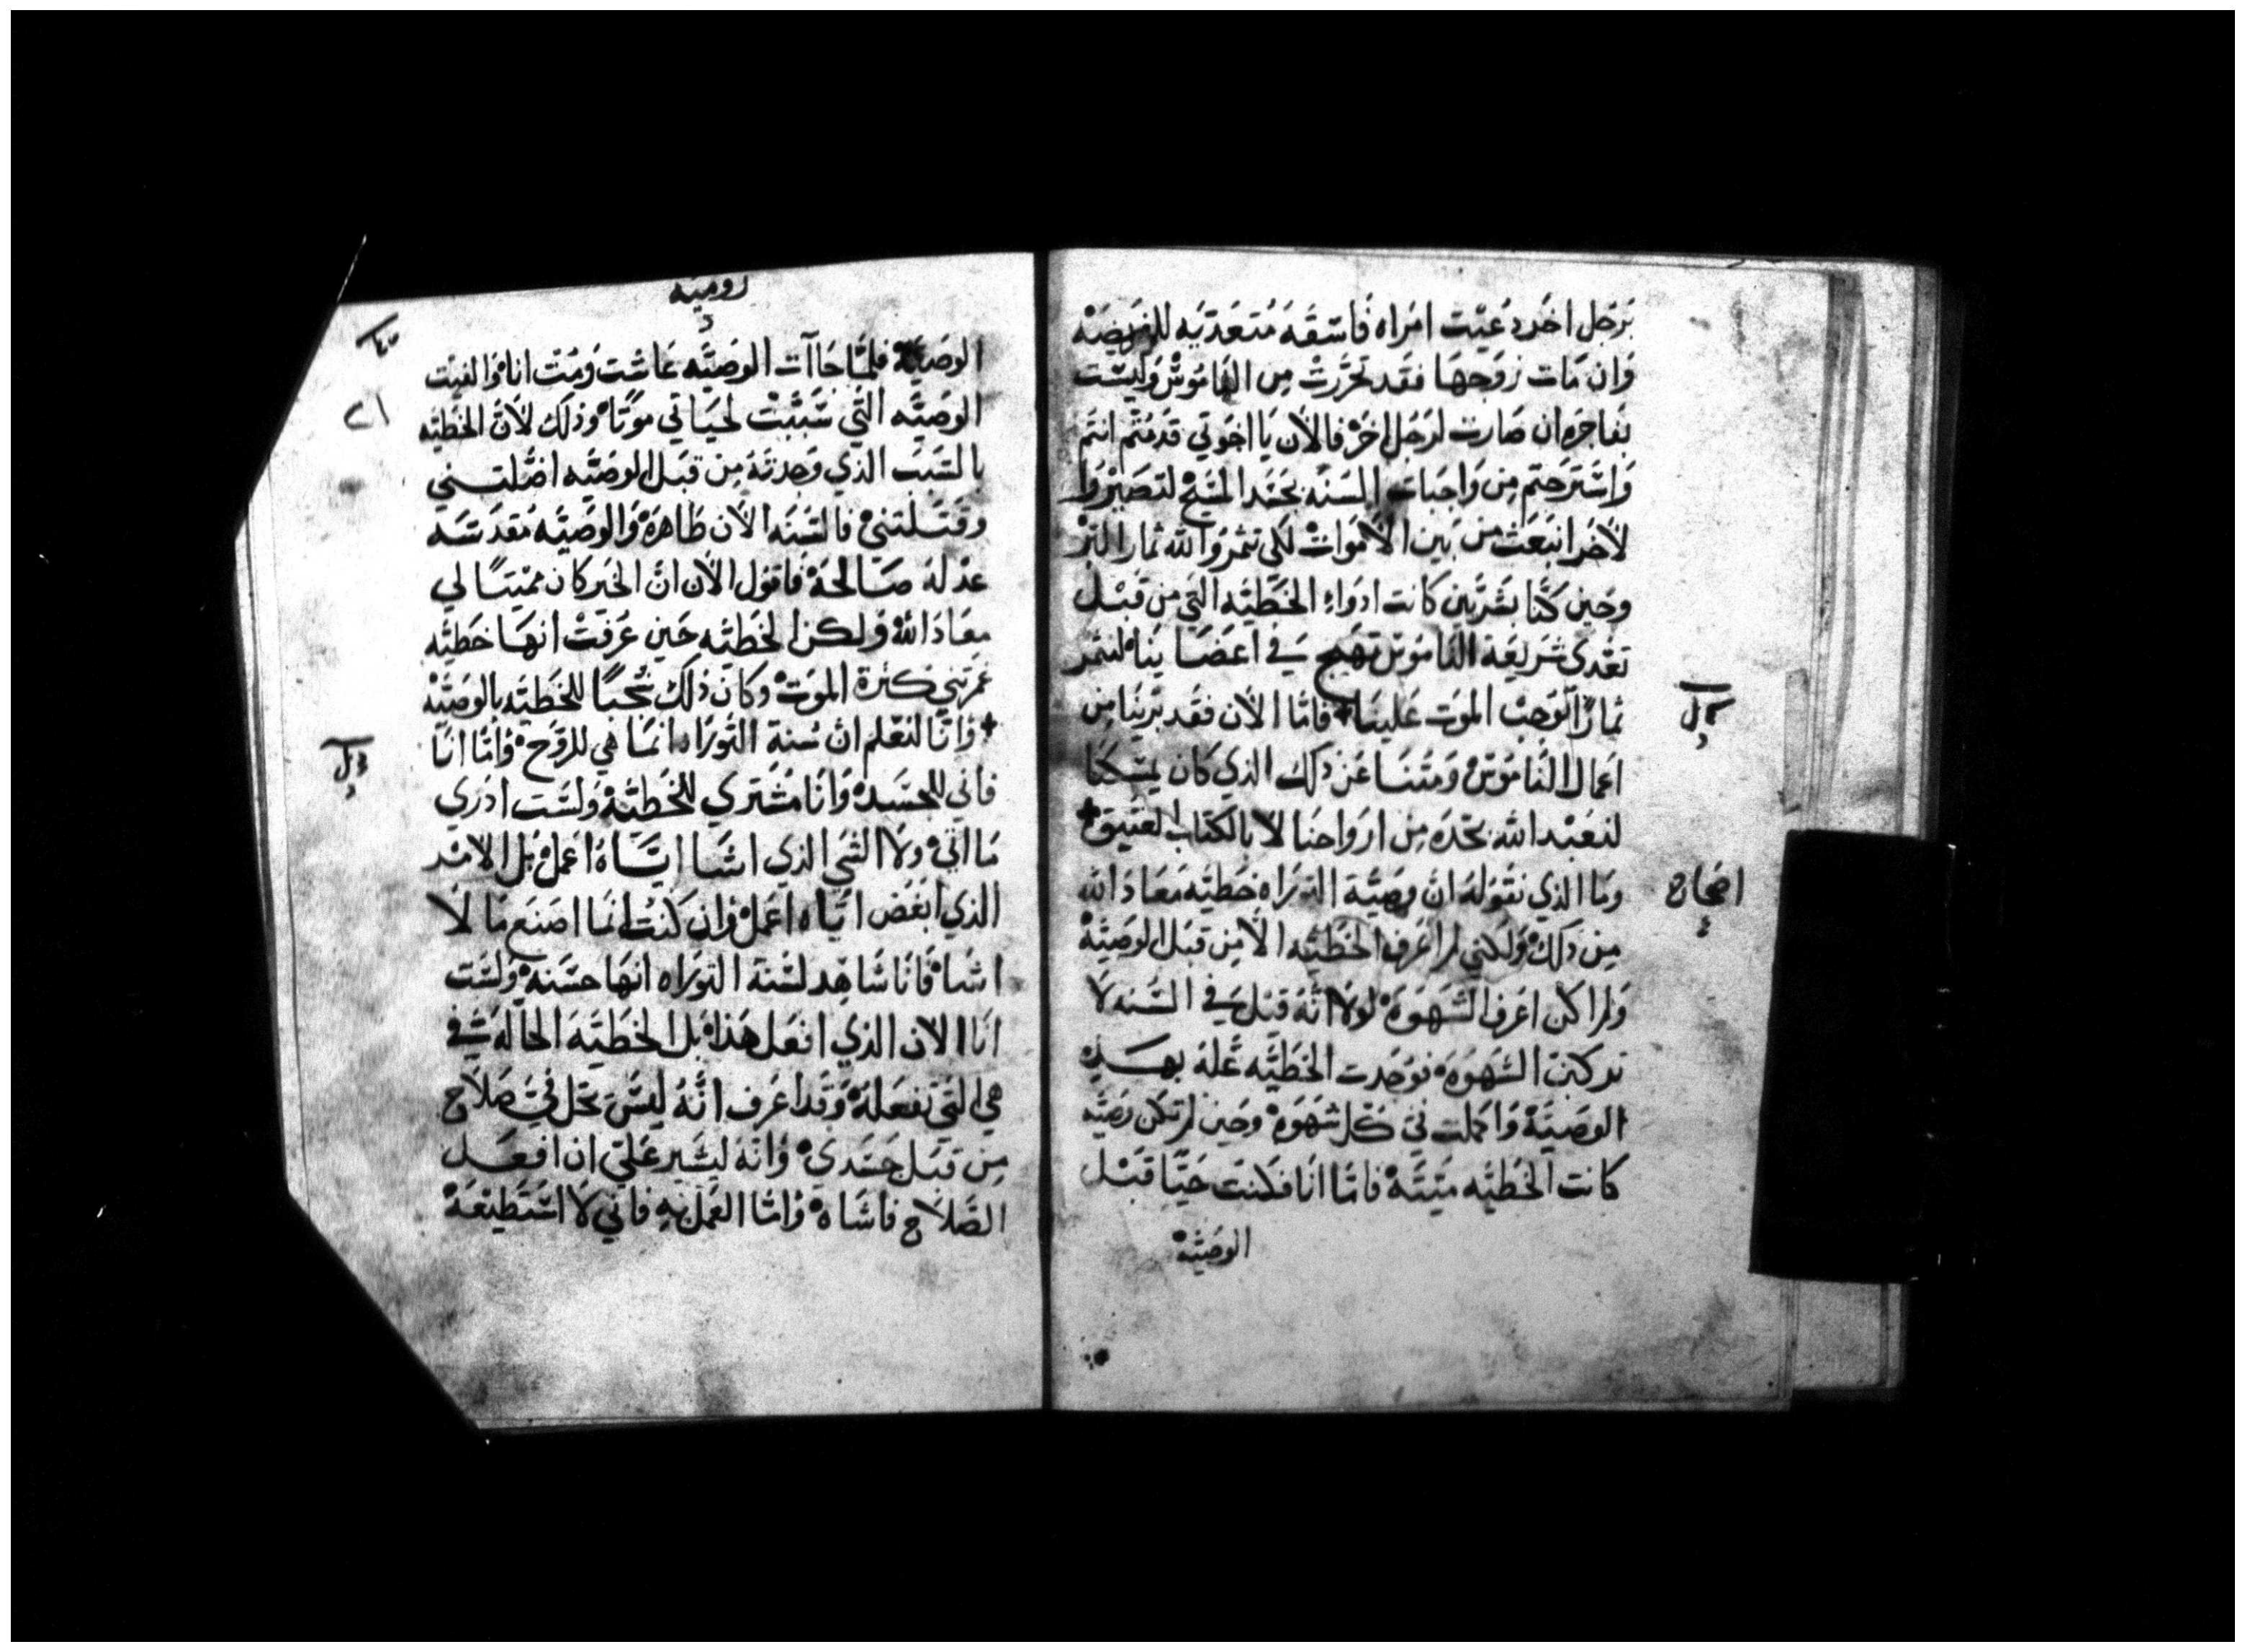 برجل اخر دعيت امراه فاسقه متعديه للفريضه
وان مات زوجها فقد تحررت من الناموس وليست
بفاجره ان صارت لرجل اخر فالان يا اخوتي قدمتم انتم
واسترحتم من واجبات السنه بجسد المسيح لتصيروا
لاخر انبعث من بين الاموات لكي تثمروا لله ثمار البر
وحين كنا بشريين كانت ادواء الخطيه التي من قبل
تعدى شريعة الناموس تهيج في اعضاينا لنثمر
ثمارا توجب الموت علينا فاما الان فقد برينا من
اعمال الناموس ومتنا عن ذلك الذي كان يمسكنا
لنعبد الله بجده من ارواحنا لا بالكتاب العتيق
وما الذي نقوله ان وصية التوراه خطيه معاذ الله
من ذلك ولكني لم اعرف الخطيه الا من قبل الوصيه
ولم اكن اعرف الشهوه لولا انه قيل في السنه لا
تركبن الشهوه فوجدت الخطيه علة بهذه
الوصيه واكملت في كل شهوه وحين لم تكن وصيه
كانت الخطيه ميته فاما انا فكنت حيا قبل
الوصيه
اصحاح
روميه
الوصيه فلما جاآت الوصيه عاشت ومت انا والفيت
الوصيه التي سببت لحياتي موتا وذلك لان الخطيه
بالسبب الذي وجدته من قبل الوصيه اضلتني
وقتلتني فالسنه الان طاهره والوصيه مقدسه
عدله صالحه فاقول الان ان الخير كان مميتا لي
معاذ الله ولكن الخطيه حين عرفت انها خطيه
غمرتني كثرة الموت وكان ذلك شجبا للخطيه بالوصيه
وانا لنعلم ان سنة التوراه انما هي للروح واما انا
فاني للجسد وانا مشتري للخطيه ولست ادري
ما اتي ولا الشي الذي اشا اياه اعمل بل الامر
الذي ابغض اياه اعمل وان كنت انما اصنع ما لا
اشا فانا شاهد لسنة التوراه انها حسنه ولست
انا الان الذي افعل هذا بل الخطيه الحاله في
هي التي تفعله وقد اعرف انه ليس يحل في صلاح
من قبل جسدي وانه ليسير علي ان افعل
الصلاح فاشاه واما العمل به فاني لا استطيعه